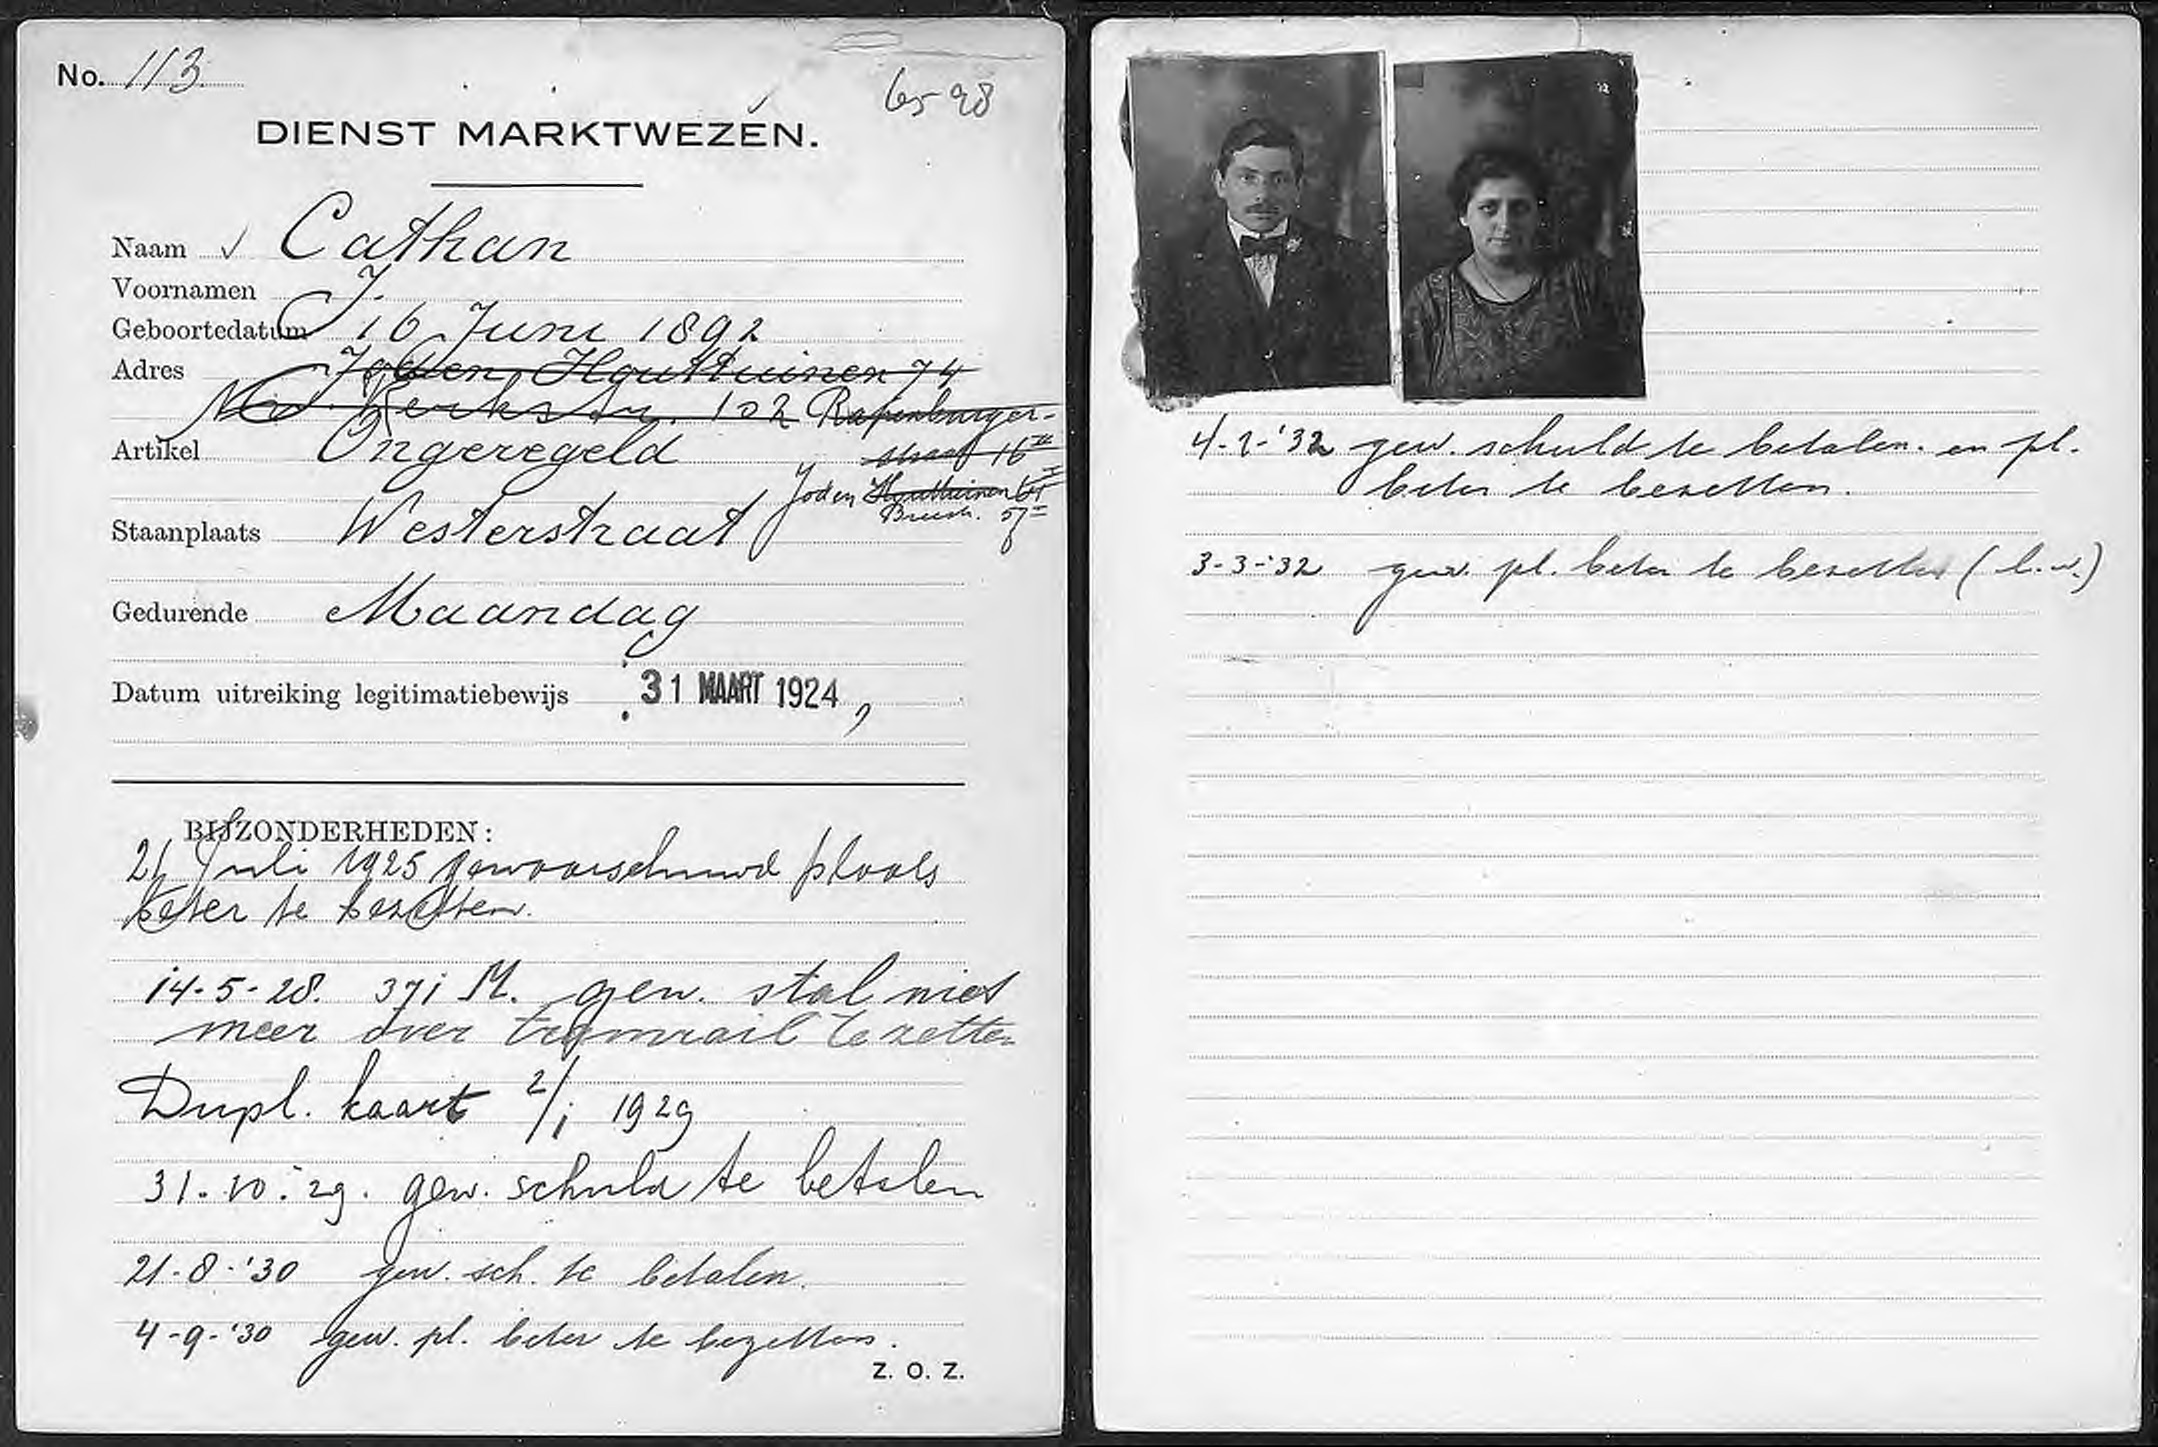 No. 113.
65-98
DIENST MARKTWEZEN.
Naam √ Cathan
Voornamen J.
Geboortedatum 16 Juni 1892
Adres Joden Houttuinen 74
Kerkstr. 102 Rapenburger-
straat 16 III
Artikel Ongeregeld
Joden Houttuinen
Breestr. 57 I
Staanplaats Westerstraat
Gedurende Maandag
Datum uitreiking legitimatiebewijs 31 MAART 1924
BIJZONDERHEDEN:
21 Juli 1925 gewaarschuwd plaats
beter te bezetten.
14-5-28. 371 M. gew. stal niet
meer over tramrail te zetten
Dupl. kaart 2/1 1929
31.10.29. gew. schuld te betalen
21-8-'30 gew. sch. te betalen.
4-9-'30 gew. pl. beter te bezetten.
Z. O. Z.
4-2-'32 gew. schuld te betalen. en pl.
beter te bezetten.
3-3-'32 gew. pl. beter te bezetten (l.w.)